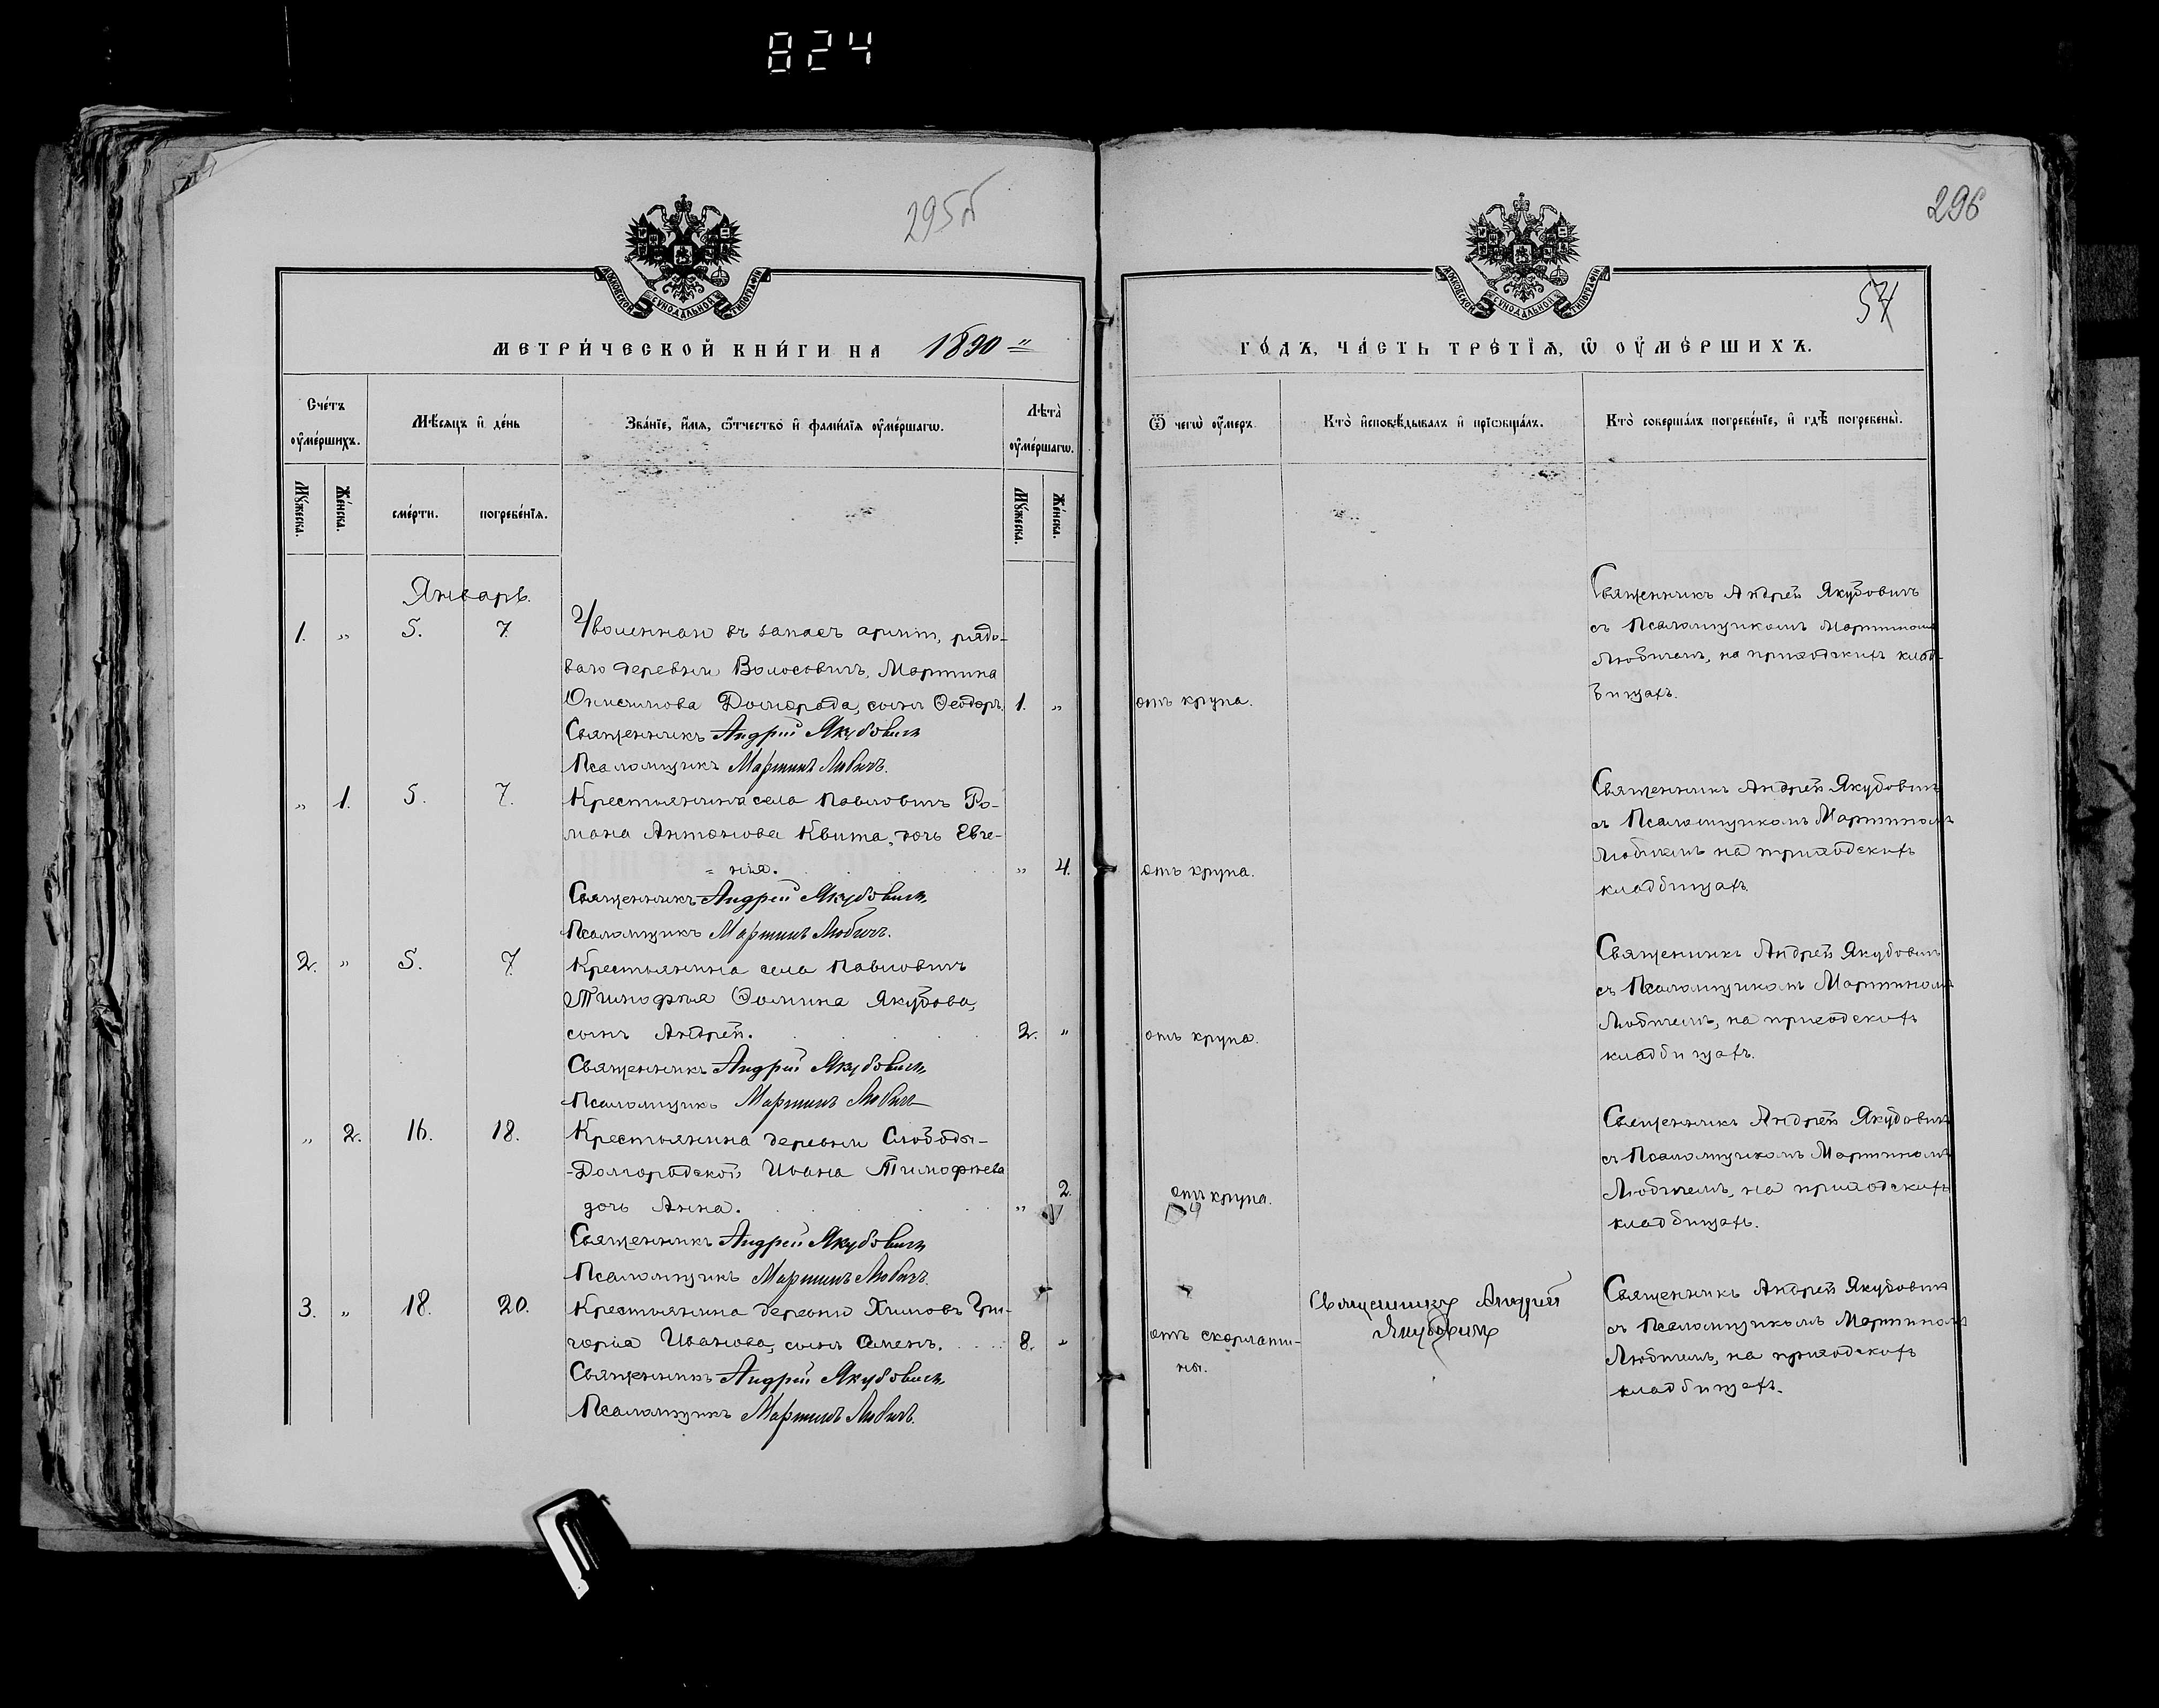 824
295об
296
54
МОСКОВСКОЙ СѴНОДАЛЬНОЙ ТИПОГРАФІИ
МОСКОВСКОЙ СѴНОДАЛЬНОЙ ТИПОГРАФІИ
МЕТРИ́ЧЕСКОЙ КНИ́ГИ НА 1890
ГО́ДЪ, ЧА́СТЬ ТРЕ́ТІѦ, Ѡ҆ ОУ҆МЕ́РШИХЪ.
Сче́тъ оу҆ме́ршихъ.
Мѣ́сяцъ и҆ де́нь
Зва́нїе, и҆́мѧ, ѻ҆́тчество и҆ фами́лїѧ оу҆ме́ршагѡ.
Лѣ́та оу҆ме́ршагѡ.
Ѿ чегѡ̀ оу҆́меръ.
Кто̀ и҆сповѣ́дывалъ и҆ прїѡбща́лъ.
Кто̀ соверша́лъ погребе́нїе, и҆ гдѣ̀ погребены̀.
Му́жеска.
Же́нска.
сме́рти.
погребе́нїѧ.
Му́жеска.
Же́нска.
Январь.
1. " 5. 7. Уволеннаго въ запасъ арміи, рядо-
ваго деревни Волосовичъ, Мартина
Онисимова Доморада, сынъ Ѳеодоръ. 1. "
Священникъ Андрей Якубовичъ
Псаломщикъ Мартинъ Любичъ.
отъ крупа.
Священникъ Андрей Якубовичъ
съ Псаломщикомъ Мартиномъ
Любичемъ, на приходскихъ клад-
бищахъ.
" 1. 5. 7. Крестьянина села Павловичъ Ро-
мана Антонова Квита, дочь Евге-
нія. " 4.
Священникъ Андрей Якубовичъ
Псаломщикъ Мартинъ Любичъ.
отъ крупа.
Священникъ Андрей Якубовичъ
съ Псаломщикомъ Мартиномъ
Любичемъ на приходскихъ
кладбищахъ.
2. " 5. 7. Крестьянина села Павловичъ
Тимофея Ѳомина Якубова,
сынъ Андрей. 2. "
Священникъ Андрей Якубовичъ
Псаломщикъ Мартинъ Любичъ
отъ крупа.
Священникъ Андрей Якубовичъ
съ Псаломщикомъ Мартиномъ
Любичемъ, на приходскихъ
кладбищахъ.
" 2. 16. 18. Крестьянина деревни Слободы-
-Домородской Ивана Тимофеева
дочь Анна. " 2.
Священникъ Андрей Якубовичъ
Псаломщикъ Мартинъ Любичъ.
отъ крупа.
Священникъ Андрей Якубовичъ
съ Псаломщикомъ Мартиномъ
Любичемъ, на приходскихъ
кладбищахъ.
3. " 18. 20. Крестьянина деревни Химовъ Гри-
горія Иванова, сынъ Семенъ. 8. "
Священникъ Андрей Якубовичъ
Псаломщикъ Мартинъ Любичъ.
отъ скарлати-
ны.
Священникъ Андрей
Якубовичъ
Священникъ Андрей Якубовичъ
съ Псаломщикомъ Мартиномъ
Любичемъ, на приходскихъ
кладбищахъ.